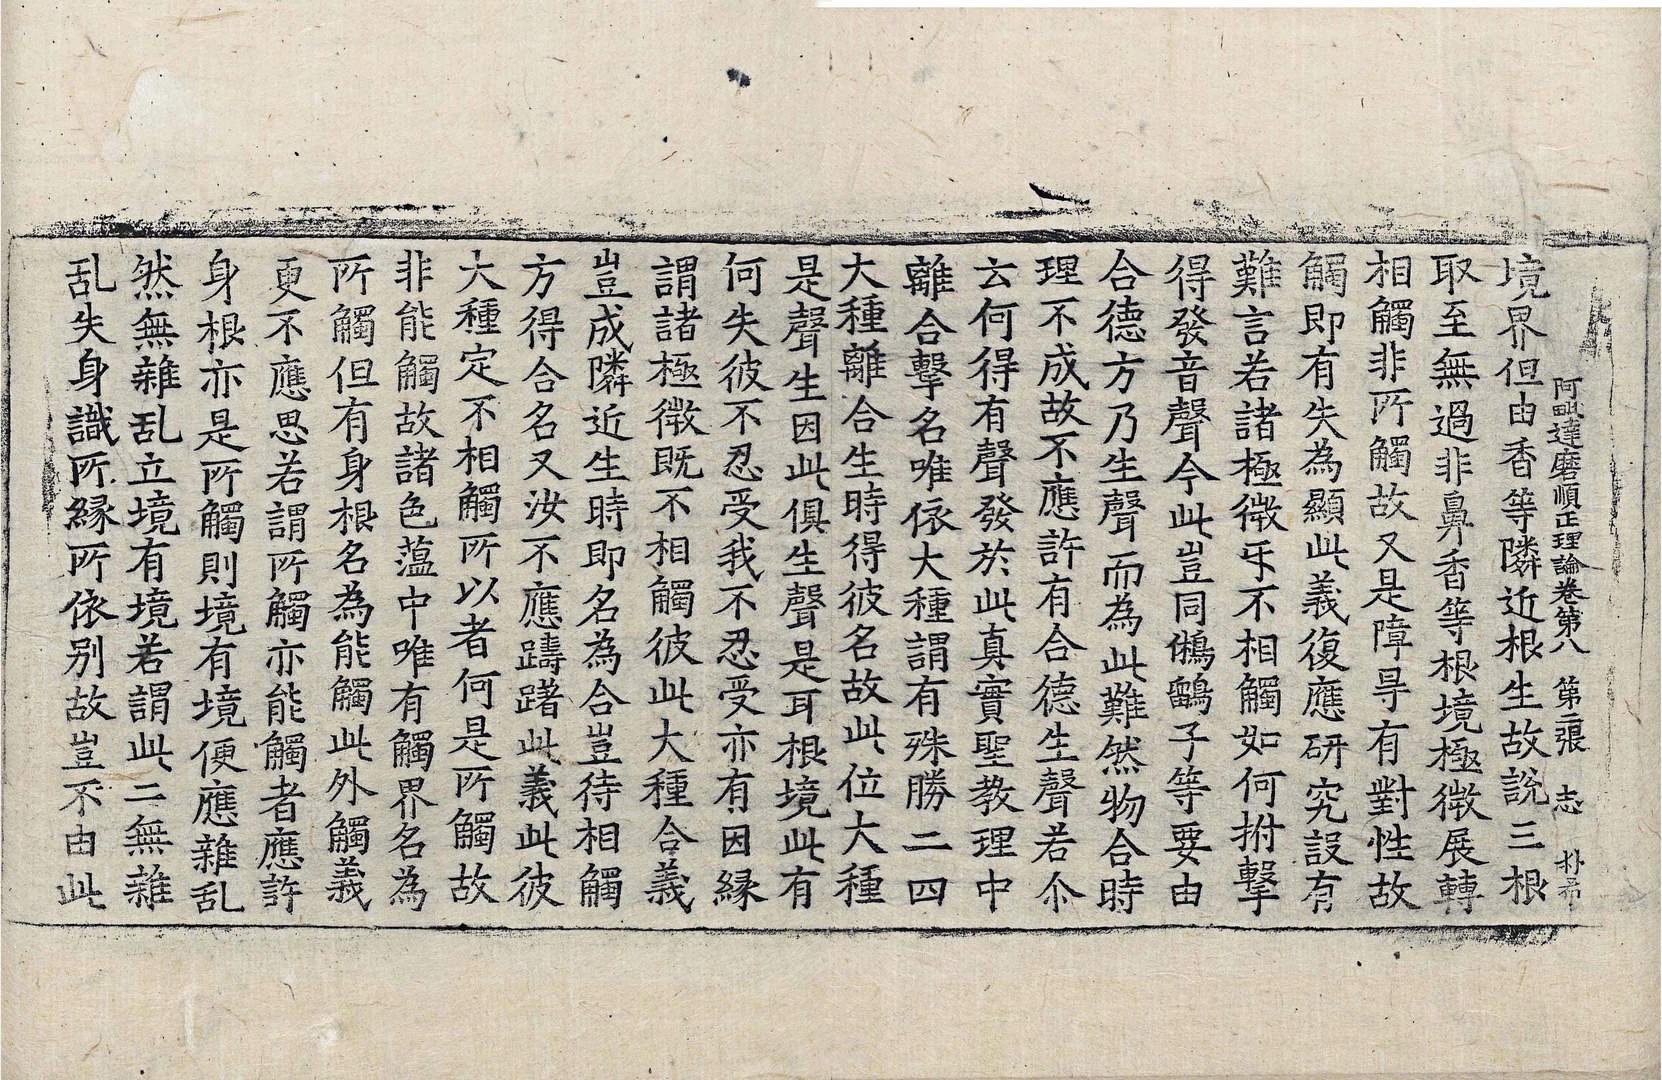 阿毗達磨順正理論卷第八 第二張 志 朴希
境界但由香等隣近根生故說三根
取至無過非鼻香等根境極微展轉
相觸非所觸故又是障㝵有對性故
觸即有失為顯此義復應研究設有
難言若諸極微㸦不相觸如何拊擊
得發音聲今此豈同鵂鶹子等要由
合德方乃生聲而為此難然物合時
理不成故不應許有合德生聲若尒
云何得有聲發於此真實聖教理中
離合擊名唯依大種謂有殊勝二四
大種離合生時得彼名故此位大種
是聲生因此俱生聲是耳根境此有
何失彼不忍受我不忍受亦有因緣
謂諸極微既不相觸彼此大種合義
豈成隣近生時即名為合豈待相觸
方得合名又汝不應躊躇此義此彼
大種定不相觸所以者何是所觸故
非能觸故諸色蘊中唯有觸界名為
所觸但有身根名為能觸此外觸義
更不應思若謂所觸亦能觸者應許
身根亦是所觸則境有境便應雜乱
然無雜乱立境有境若謂此二無雜
乱失身識所緣所依別故豈不由此